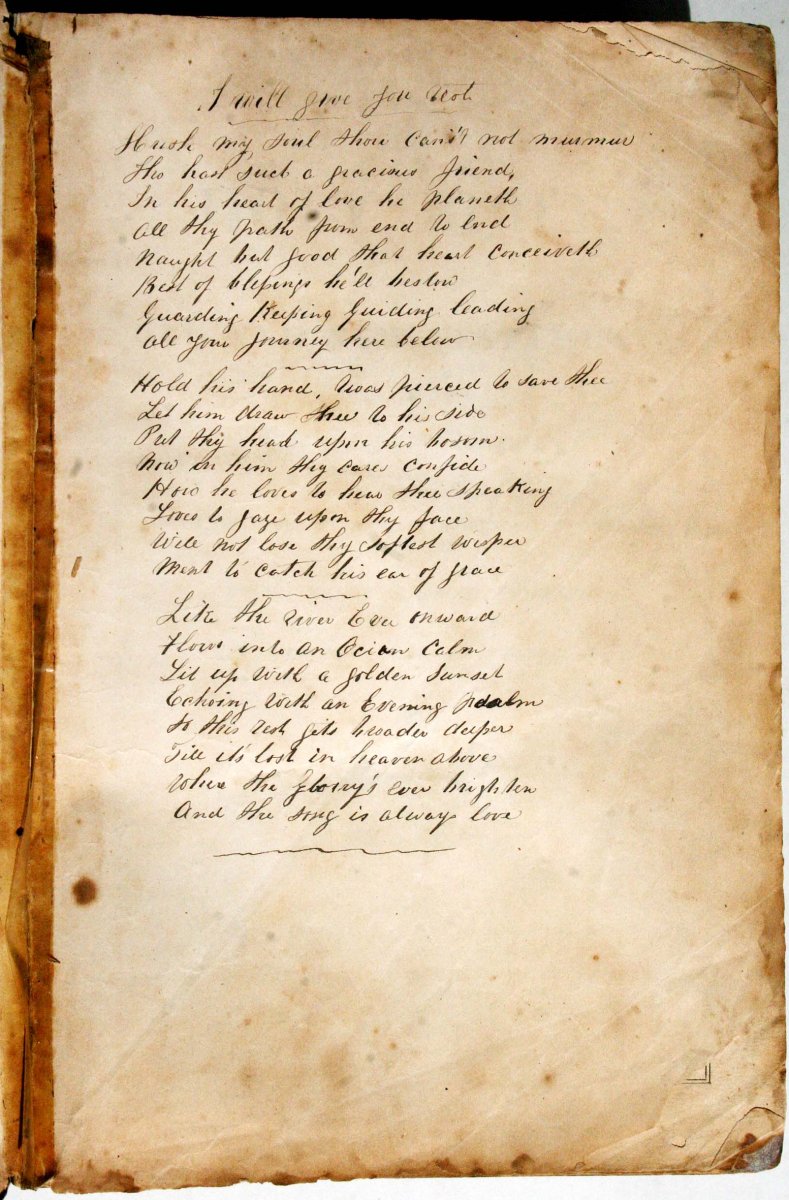 I will give you Rest
Hush my soul thou can'st not murmur
Tho hast such a gracious friend,
In his heart of love he planeth
All thy path from end to End
Naught but good that heart conceiveth
Best of blessings he'll bestow
Guarding Keeping Guiding leading
All your journey here below
Hold his hand, twas pierced to save thee
Let him draw thee to his side
Put thy head upon his bosom.
Now in him thy cares confide
How he loves to hear thee speaking
Loves to gaze upon thy face
Will not lose thy softest wisper
Ment to catch his ear of grace
Like the river Ever onward
Flows into an Ocian calm
Lit up with a golden sunset
Echoing with an Evening psalm
So this rest gets broader deeper
Till it's lost in heaven above
Where the glorry's ever brighten
And the song is always love